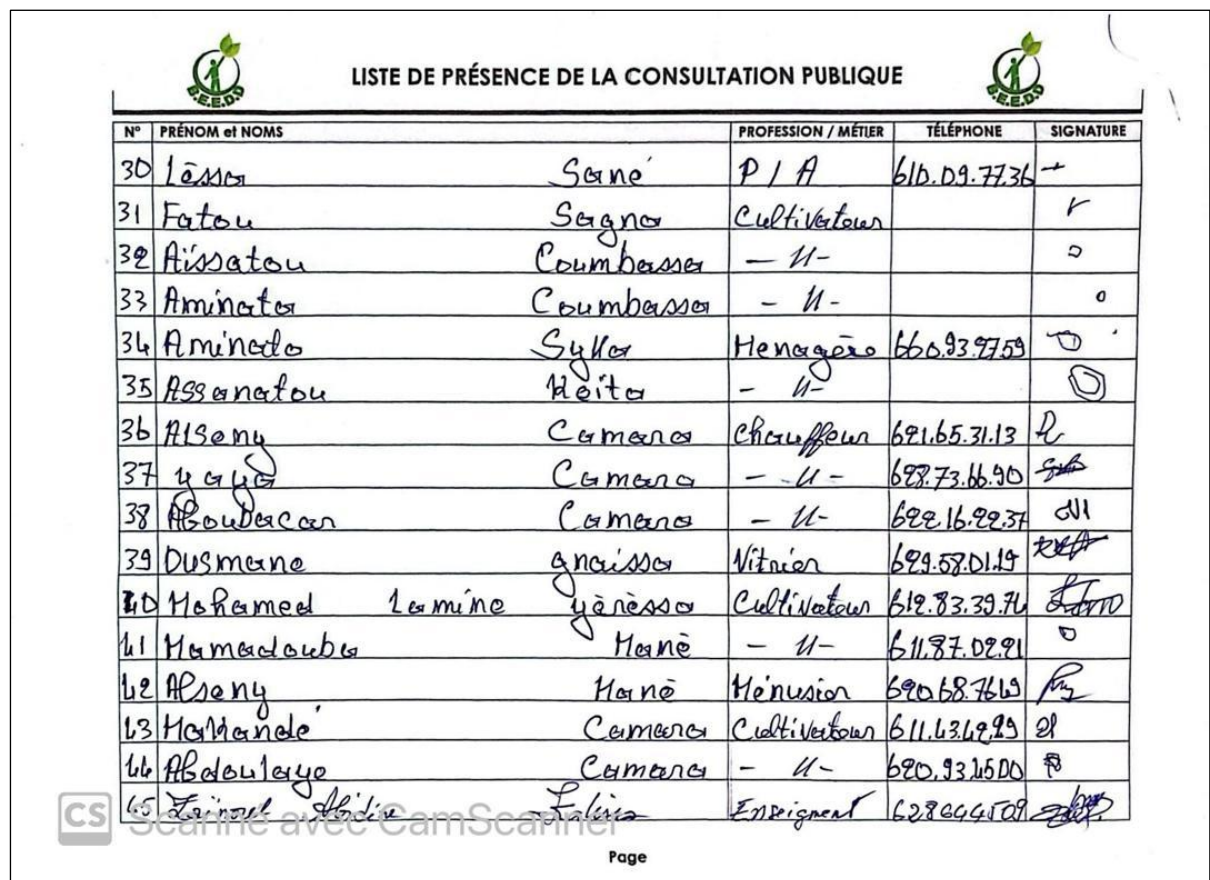 B.E.E.D.D
LISTE DE PRÉSENCE DE LA CONSULTATION PUBLIQUE
B.E.E.D.D
N° PRÉNOM et NOMS PROFESSION / MÉTIER TÉLÉPHONE SIGNATURE
30 Lēssa Sané P / A 610.09.77.36
31 Fatou Sagna Cultivateur
32 Aïssatou Coumbassa - 11 -
33 Aminata Coumbassa - 11 -
34 Aminado Sylla Menagère 660.93.97.59
35 Assanatou Keita - 11 -
36 Alseny Camara Chauffeur 621.65.31.13
37 Yaya Camara - 11 - 628.73.66.90
38 Aboubacar Camara - 11 - 622.16.22.37
39 Ousmane gnaissa Vitrier 629.58.01.19
40 Mohamed Lamine yarèssa Cultivateur 612.83.39.74
41 Mamadouba Manè - 11 - 611.87.02.21
42 Alseny Manè Ménusier
43 Camara Cultivateur
44 Abdoulaye Camara - 11 - 620.93.45.00
45 Enseignent 628644509
CS Scanné avec CamScanner
Page